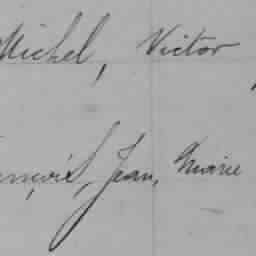 Michel, Victor
ançois, Jean, Marie